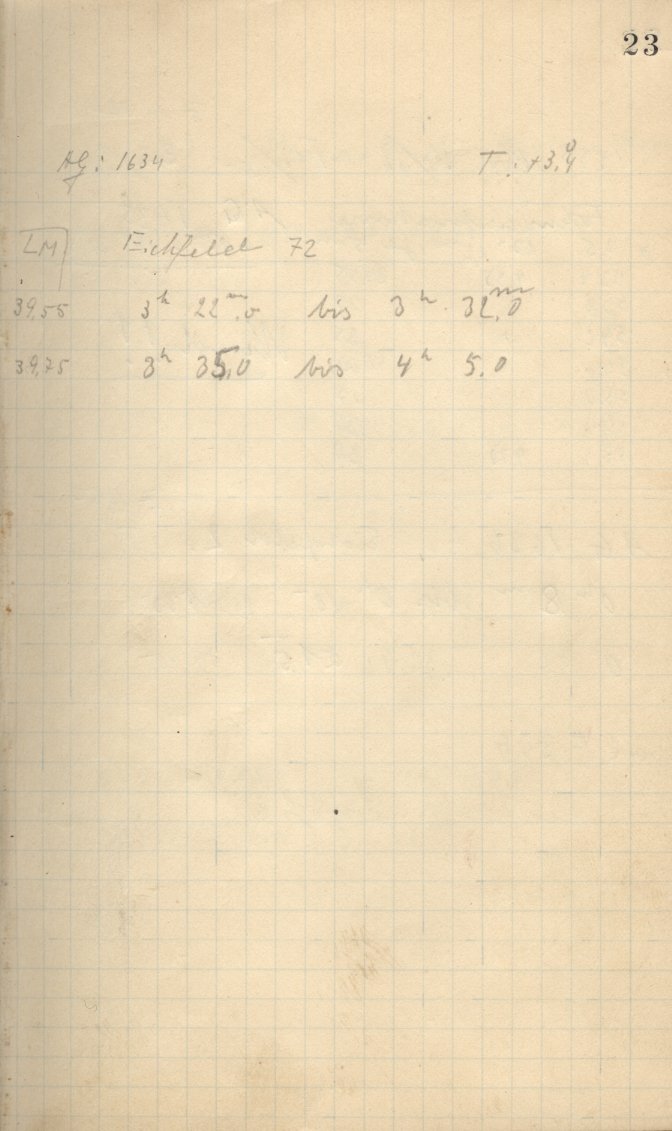 23
AG: 1634 T: +3,4°
LM Eichfeld 72
39,55 3h 22m,0 bis 3h 32,m0
39,75 3h 35,0 bis 4h 5,0